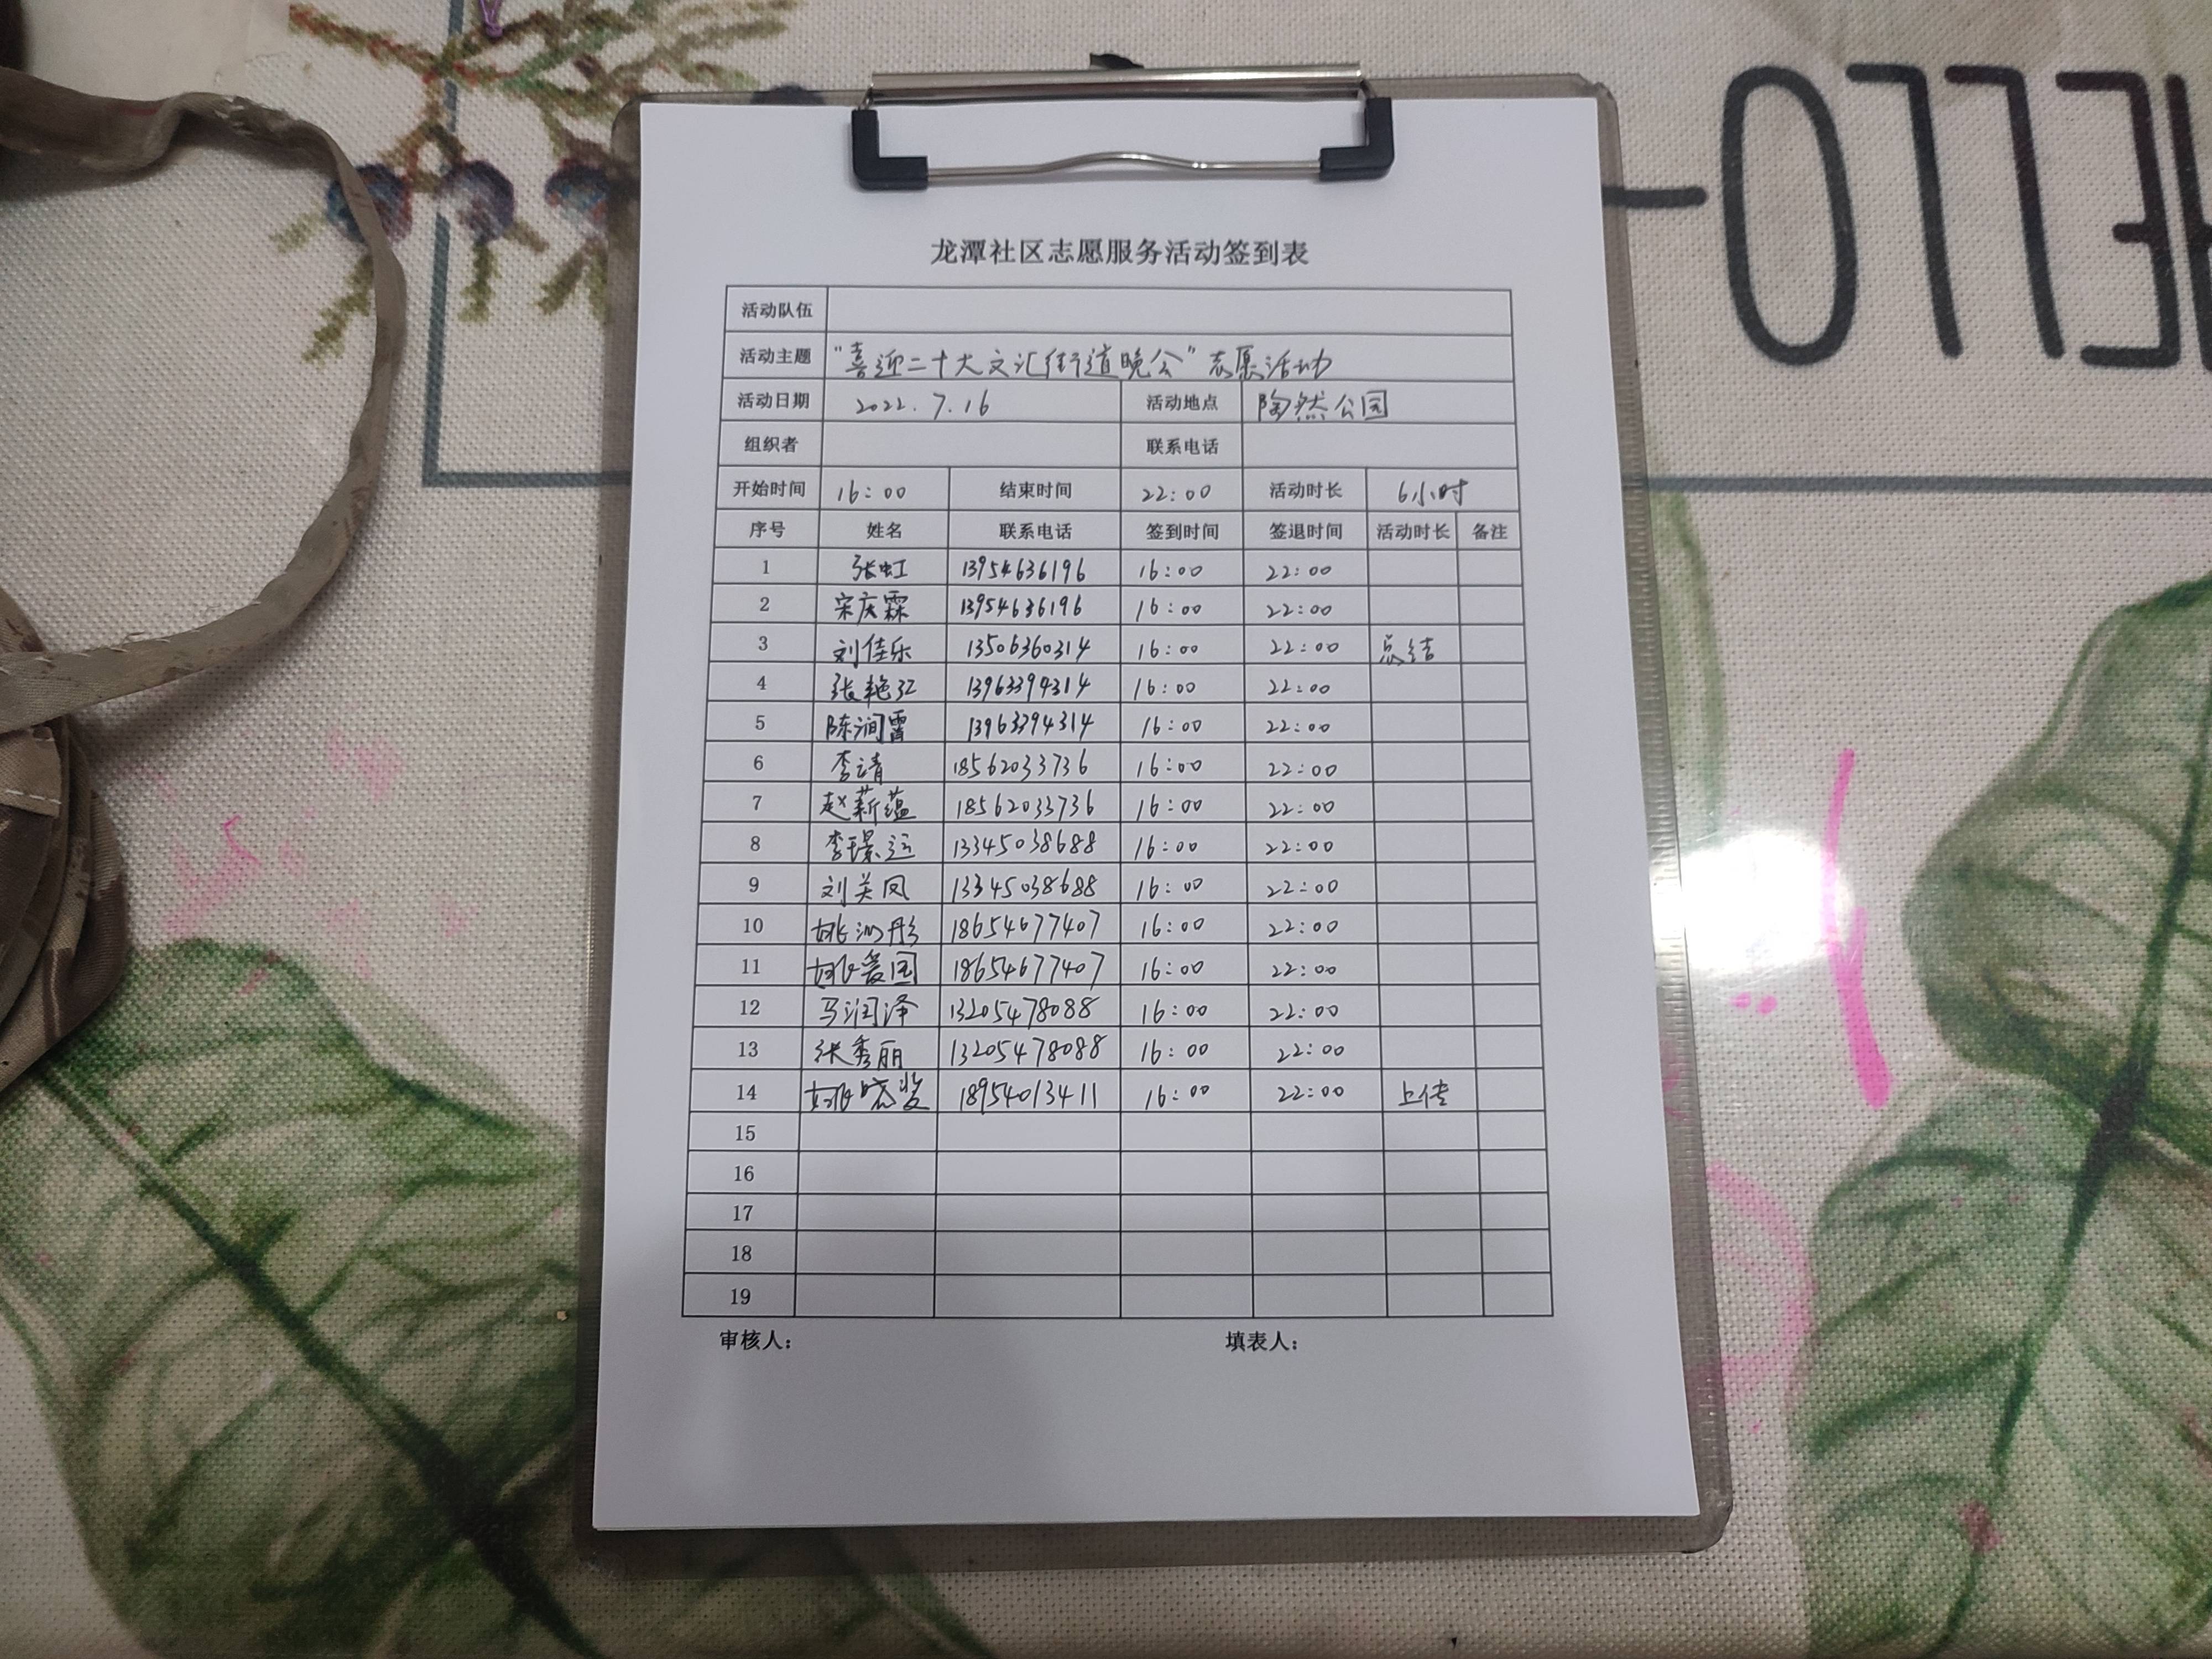 龙潭社区志愿服务活动签到表
活动队伍
活动主题 "喜迎二十大文汇街道晚会"志愿活动
活动日期 2022.7.16 活动地点 陶然公园
组织者 联系电话
开始时间 16:00 结束时间 22:00 活动时长 6小时
序号 姓名 联系电话 签到时间 签退时间 活动时长 备注
1 张虹 13954636196 16:00 22:00
2 宋庆霖 13954636196 16:00 22:00
3 刘佳乐 13506360314 16:00 22:00 总结
4 张艳红 13963394314 16:00 22:00
5 陈润霄 13963394314 16:00 22:00
6 李靖 18562033736 16:00 22:00
7 赵薪蕴 18562033736 16:00 22:00
8 李璟运 13345038688 16:00 22:00
9 刘美凤 13345038688 16:00 22:00
10 姚沁彤 18654677407 16:00 22:00
11 姚爱国 18654677407 16:00 22:00
12 马润泽 13205478088 16:00 22:00
13 张秀丽 13205478088 16:00 22:00
14 姚晓 18954013411 16:00 22:00 上传
15
16
17
18
19
审核人： 填表人：
HELLO